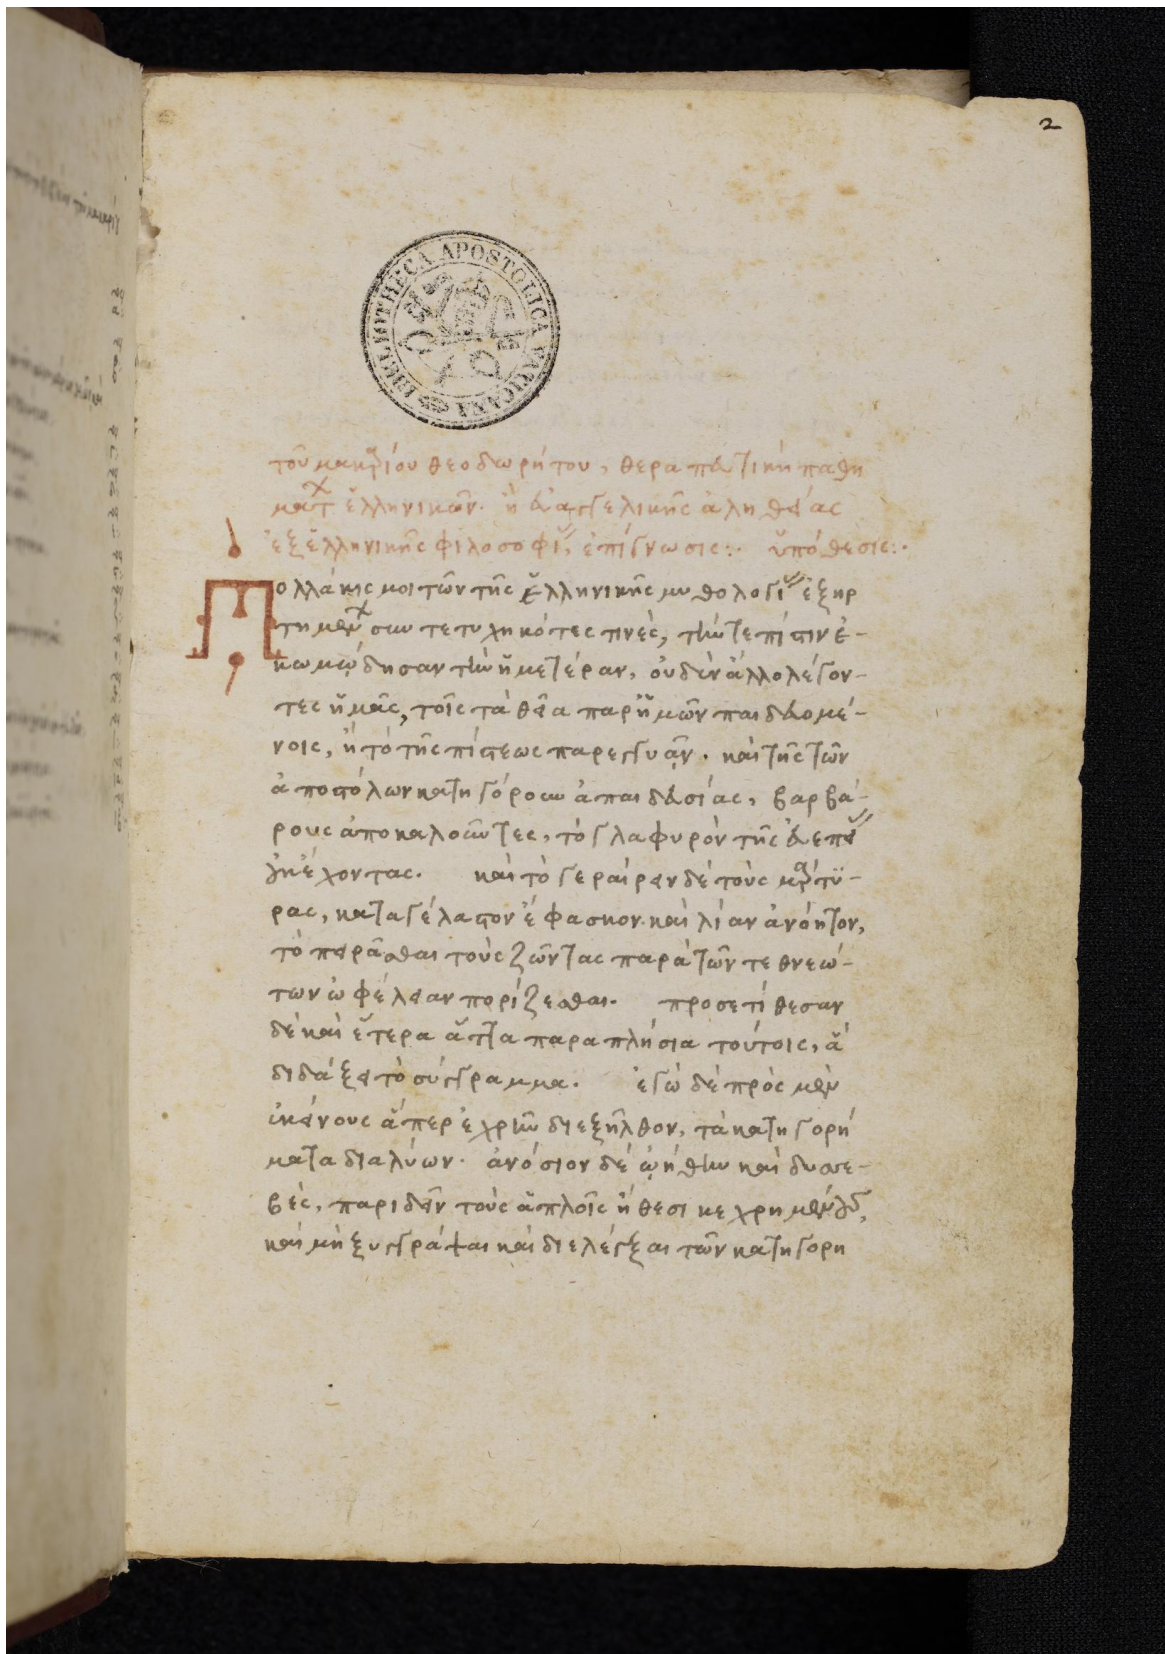 2
BIBLIOTHECA APOSTOLICA VATICANA
τοῦ μακαρίου θεοδωρήτου, θεραπευτικὴ παθη
μάτων ἑλληνικῶν. ἢ εὐαγγελικῆς ἀληθείας
ἐξ ἑλληνικῆς φιλοσοφίας ἐπίγνωσις:· ὑπόθεσις:·
Πολλάκις μοι τῶν τῆς ἑλληνικῆς μυθολογίας ἐξηρ
τημένων συντετυχηκότες τινὲς, τήν τε πίστιν ἐ-
κωμῴδησαν τὴν ἡμετέραν, οὐδὲν ἄλλο λέγον-
τες ἡμᾶς, τοῖς τὰ θεῖα παρ' ἡμῶν παιδευομέ-
νοις, ἢ τὸ τῆς πίστεως παρεγγυᾷν. καὶ τῆς τῶν
ἀποστόλων κατηγόρουν ἀπαιδευσίας, βαρβά-
ρους ἀποκαλοῦντες, τὸ γλαφυρὸν τῆς εὐεπείας
οὐκ ἔχοντας. καὶ τὸ γεραίρειν δὲ τοὺς μάρτυ-
ρας, καταγέλαστον ἔφασκον. καὶ λίαν ἀνόητον,
τὸ πειρᾶσθαι τοὺς ζῶντας παρὰ τῶν τεθνεώ-
των ὠφέλειαν πορίζεσθαι. προσετίθεσαν
δὲ καὶ ἕτερα ἄττα παραπλήσια τούτοις, ἃ
διδάξει τὸ σύγγραμμα. ἐγὼ δὲ πρὸς μὲν
ἐκείνους ἅπερ ἐχρῆν διεξῆλθον, τὰ κατηγορή
ματα διαλύων. ἀνόσιον δὲ ᾠήθην καὶ δυσσε-
βὲς, παριδεῖν τοὺς ἁπλοῖς ἤθεσι κεχρημένους,
καὶ μὴ ξυγγράψαι καὶ διελέγξαι τῶν κατηγορη